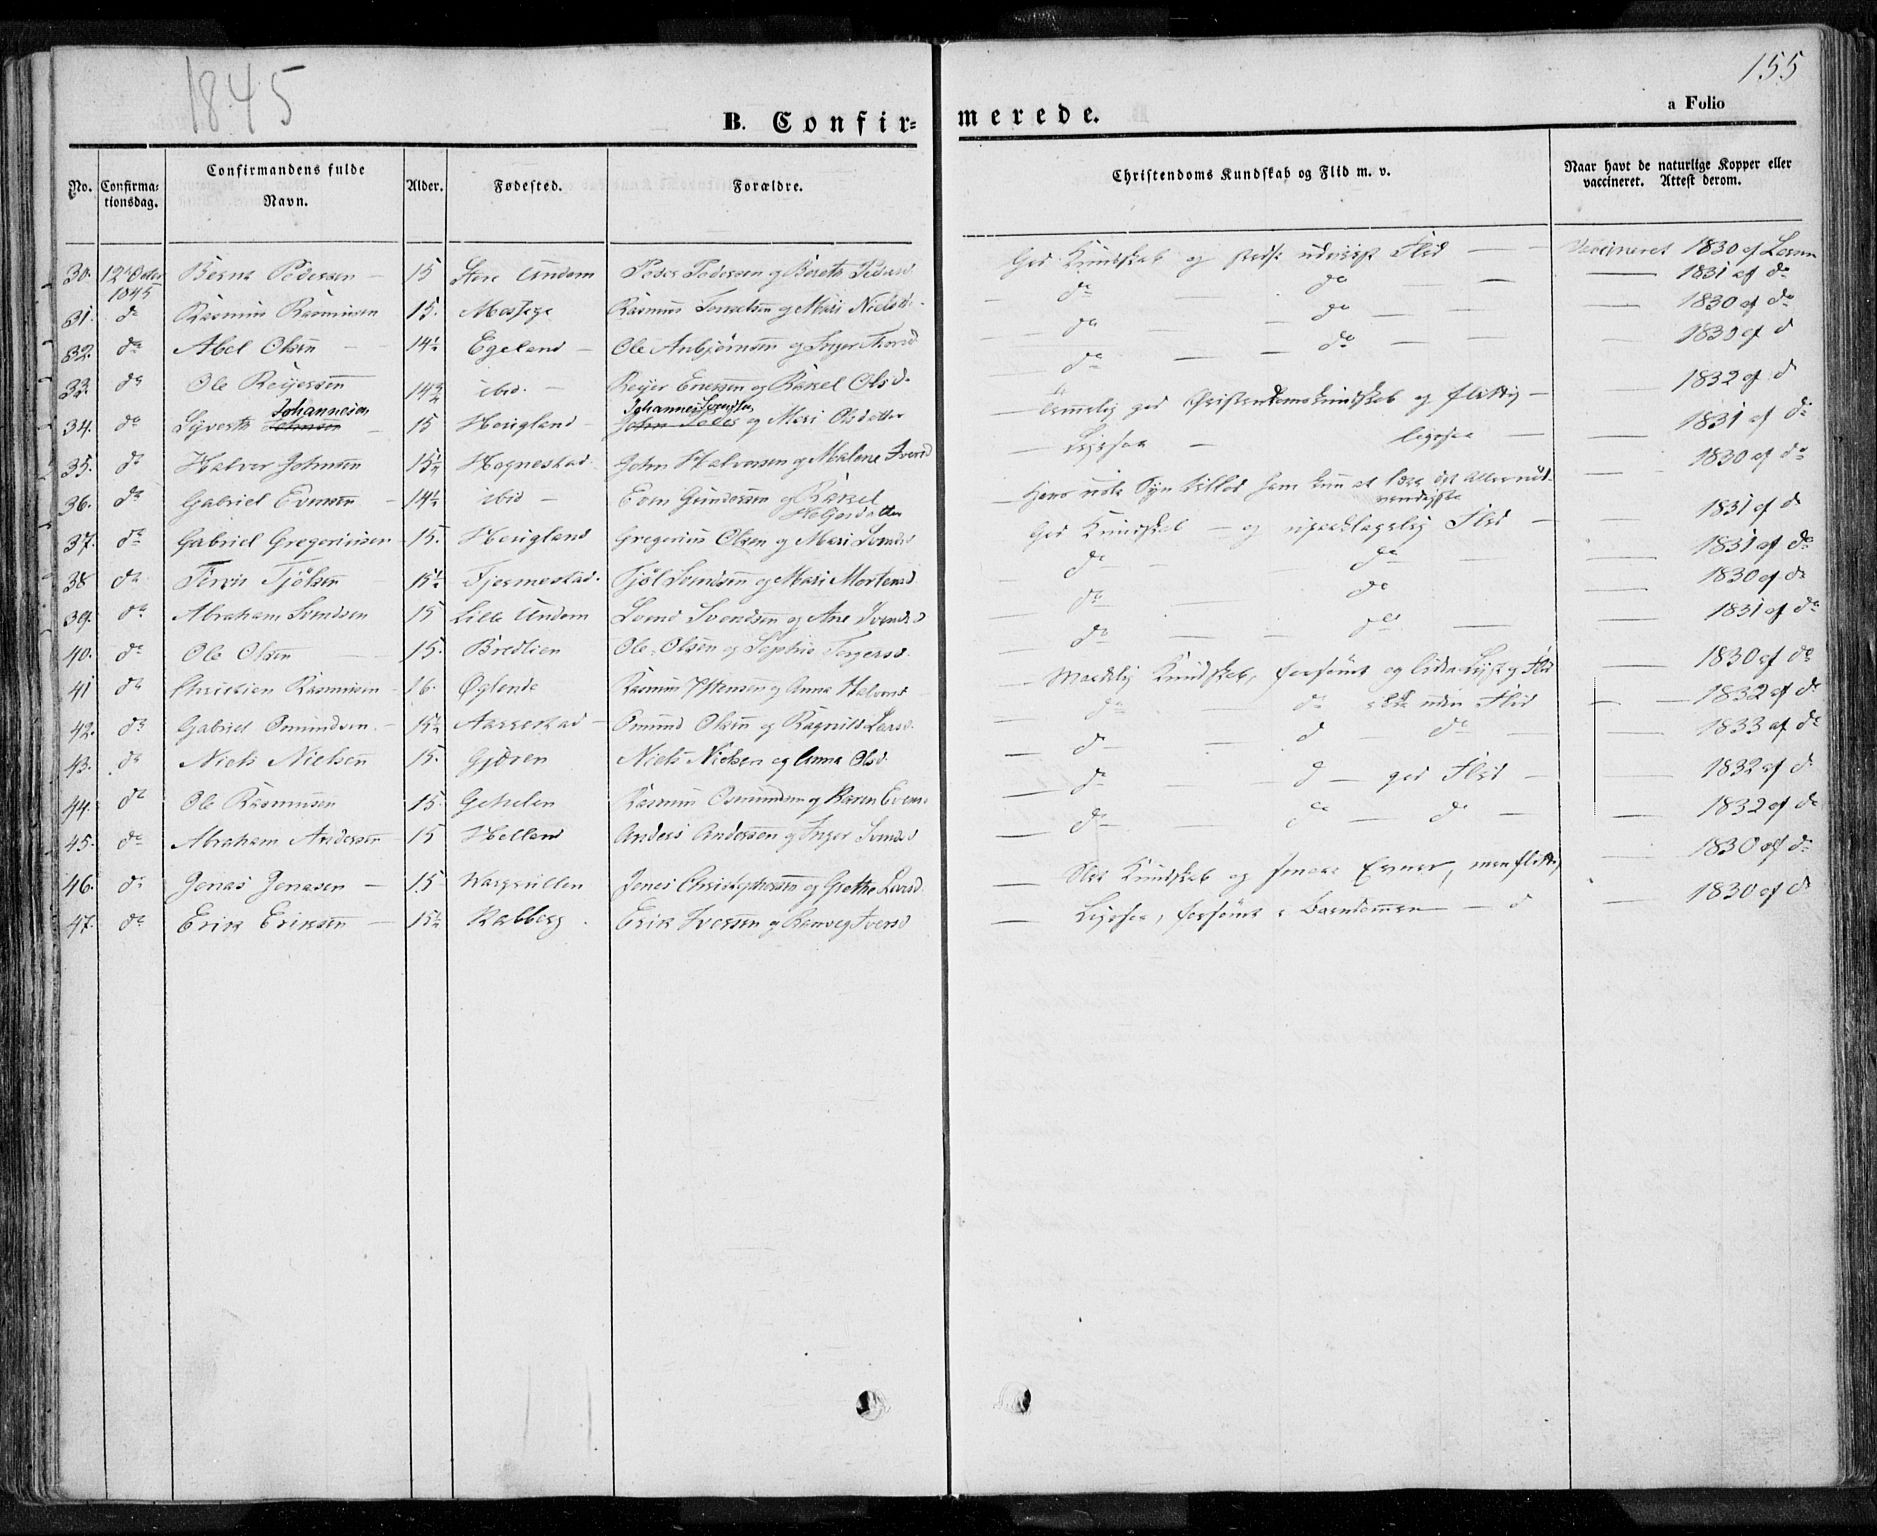 1845
155
a Folio
B. Confir= merede.
No. Confirmationsdag. Confirmandens fulde Navn. Alder. Fødested. Forældre. Christendoms Kundskab og Flid m. v. Naar havt de naturlige Kopper eller vaccineret. Attest derom.
30. 12te Octbr 1845 Pedersen 15 Store Undem Peder Pedersen og Berete Pedersd God Kundskab og stedse udviist Flid Vaccineret 1830 af
31. do Rasmus Rasmussen 15. Mossige Rasmus og Mari Nielsd. do do 1831 af do
32. do Abel Olsen 14½ Egeland Ole Anbjørnsen og Inger do do 1830 af do
33. do Ole Reijersen ibid. Reijer Enersen og Rakel Olsd. do do 1830 af d
34. do Sijvert Johannesen 15 Heugland Johannes og Mari Olsdatter temmelig god Christendomskundskab og flittig 1832 af d
35. do Halver Johnsen 15½ Hognestad John Halversen og Malene Iversd Ligesaa ligesaa 1831 af do
36. do Gabriel Evensen 14½ ibid Even Gundersen og Rakel Helgesdatter Syn tillod ham kun at lære det allernødvendigste 1830 af do
37. do Gabriel Gregoriussen 15. Heugland Gregorius Olsen og Mari Svendsd God Kundskab og upaaklagelig Flid 1831 af d
38 do Tjølsen 15½ Tjermestad. Tjøl Svendsen og Mari Mortensd do do 1831 af do
39. do Abraham Svendsen 15 Lille Undem Svend Svendsen og Ane Svendsd do do 1830 af do
40. do Ole Olsen 15. Bredlien Ole Olsen og Sophie Torgersd. do do 1831 af do
41 do Christien Rasmusen 16. Øglende Rasmus og Anna Halversd Maadelig Kundskab, forsømt og liden Lyst og Flid 1830 af do
42. do Gabriel Omundsen. 15½ Aarrestad Omund Olsen og Ragnild Larsd. do do uden Flid 1832 af do
43. do Niels Nielsen 15. Gjøren Niels Nielsen og Anna Olsd. d d do 1833 af do
44. do Ole Rasmusen 15. Rasmus Osmundsen og Karen Evens. do d god Flid 1832 af d
45. do Abraham Andersen 15 Helland Anders Andersen og Inger Svendsd do do do 1832 af do
46. do Jonas Jonasen 15 Jonas Christophersen og Grethe Larsd. Slet Kundskab og smaae Evner, men flittig 1830 af do
47. do Erik Eriksen 15½ Kalberg Erik Iversen og Iversd Ligesaa, forsømt i Barndommen d 1830 af d